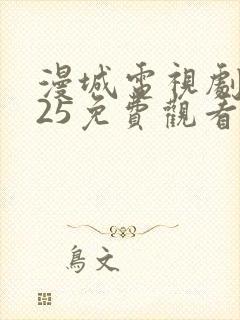 漫城電視劇
25免費觀看
鳥文